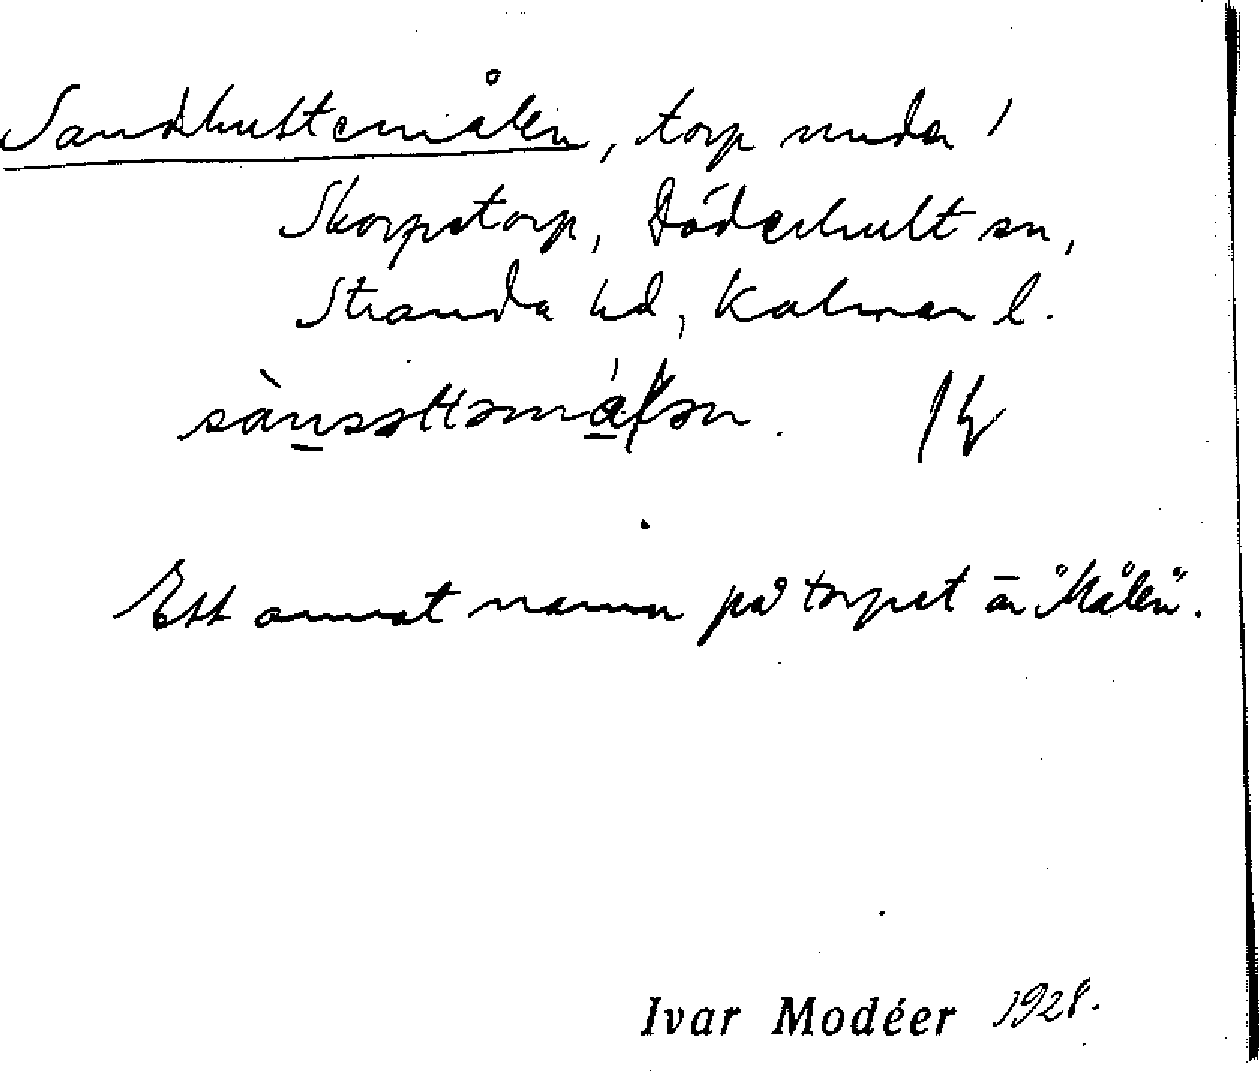 Sandhultemålen, torp under 1
Skorpetorp, Döderhult sn,
Stranda hd, Kalmar l.
Ett annat namn på torpet är "Målen".
Ivar Modéer 1928.